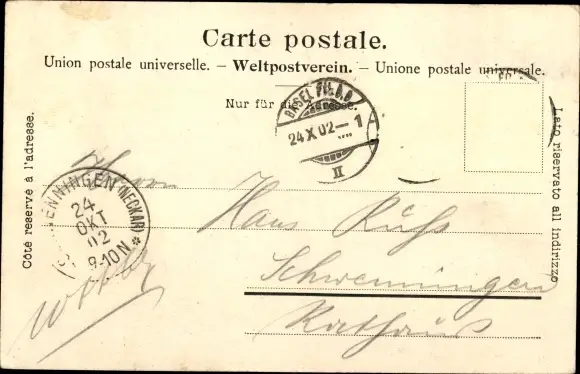 Carte postale.
Union postale universelle. – Weltpostverein. – Unione postale universale.
Nur für die Adresse.
BASEL FIL. B.B
24 X 02 – 1
II
Côté reservé à l'adresse.
Lato riservato all indirizzo
SCHWENNINGEN (NECKAR)
24
OKT
02
9-10 N
Herrn
Hans Rufs
Schwenningen
Rathaus